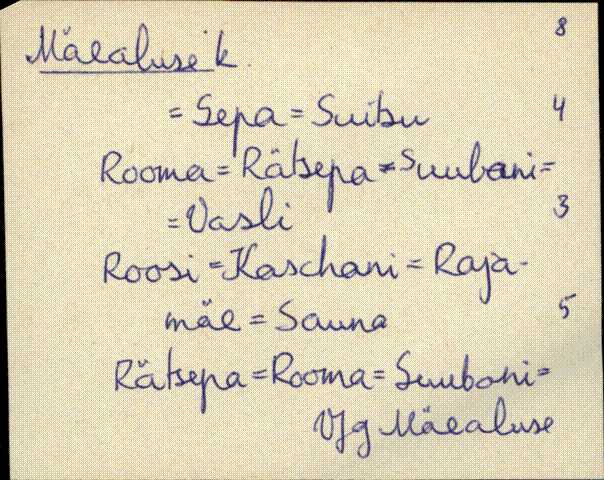 8
Mäealuse k.
= Sepa = Suitsu 4
Rooma = Rätsepa = Suubani =
= Vasli 3
Roosi = Kaschani = Raja-
mäe = Sauna 5
Rätsepa = Rooma = Suubani =
Mäealuse